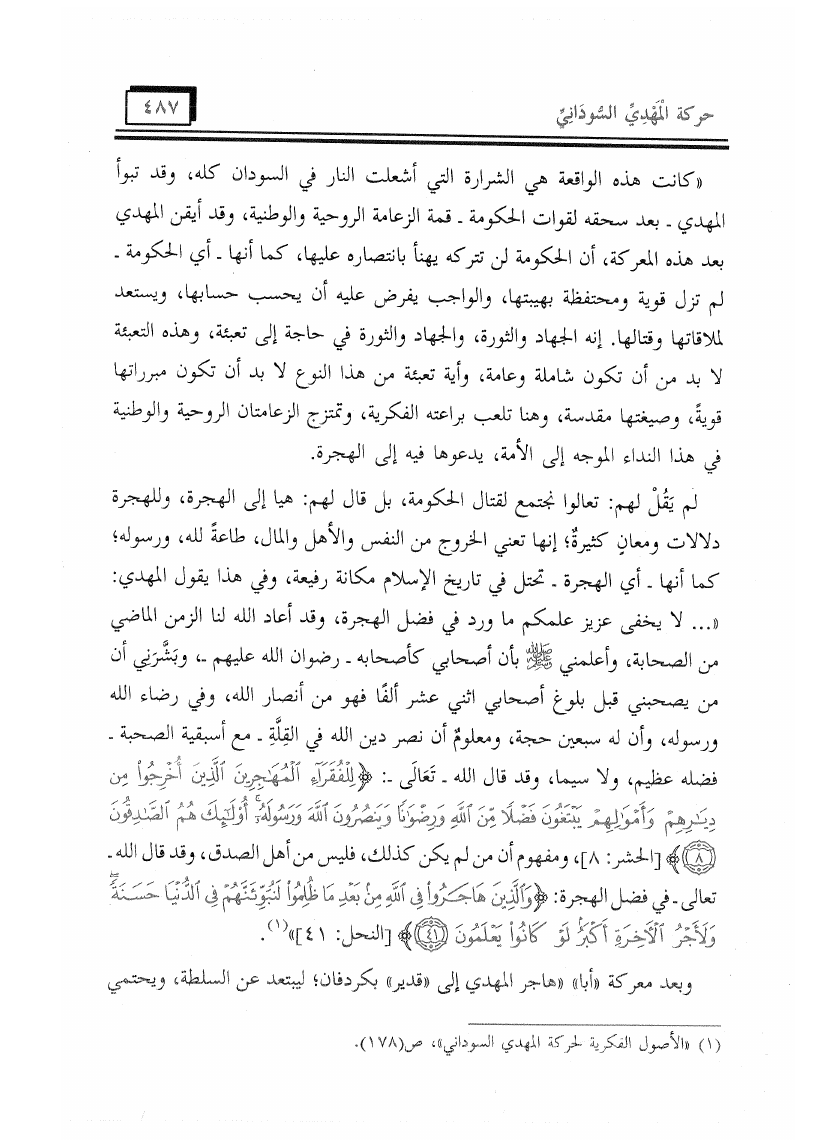 حركة الْمَهْدِيِّ السُّودَانِيِّ
٤٨٧
«كانت هذه الواقعة هي الشرارة التي أشعلت النار في السودان كله، وقد تبوأ
المهدي ـ بعد سحقه لقوات الحكومة ـ قمة الزعامة الروحية والوطنية، وقد أيقن المهدي
بعد هذه المعركة، أن الحكومة لن تتركه يهنأ بانتصاره عليها، كما أنها ـ أي الحكومة ـ
لم تزل قوية ومحتفظة بهيبتها، والواجب يفرض عليه أن يحسب حسابها، ويستعد
لملاقاتها وقتالها. إنه الجهاد والثورة، والجهاد والثورة في حاجة إلى تعبئة، وهذه التعبئة
لا بد من أن تكون شاملة وعامة، وأية تعبئة من هذا النوع لا بد أن تكون مبرراتها
قويةً، وصيغتها مقدسة، وهنا تلعب براعته الفكرية، وتمتزج الزعامتان الروحية والوطنية
في هذا النداء الموجه إلى الأمة، يدعوها فيه إلى الهجرة.
لم يَقُلْ لهم: تعالوا نجتمع لقتال الحكومة، بل قال لهم: هيا إلى الهجرة، وللهجرة
دلالات ومعانٍ كثيرةٌ؛ إنها تعني الخروج من النفس والأهل والمال، طاعةً لله، ورسوله؛
كما أنها ـ أي الهجرة ـ تحتل في تاريخ الإسلام مكانة رفيعة، وفي هذا يقول المهدي:
«... لا يخفى عزيز علمكم ما ورد في فضل الهجرة، وقد أعاد الله لنا الزمن الماضي
من الصحابة، وأعلمني ﷺ بأن أصحابي كأصحابه ـ رضوان الله عليهم ـ، وبَشَّرَنِي أن
من يصحبني قبل بلوغ أصحابي اثني عشر ألفًا فهو من أنصار الله، وفي رضاء الله
ورسوله، وأن له سبعين حجة، ومعلومٌ أن نصر دين الله في القِلَّةِ ـ مع أسبقية الصحبة ـ
فضله عظيم، ولا سيما، وقد قال الله ـ تَعَالَى ـ: ﴿لِلْفُقَرَآءِ ٱلْمُهَٰجِرِينَ ٱلَّذِينَ أُخْرِجُوا۟ مِن
دِيَٰرِهِمْ وَأَمْوَٰلِهِمْ يَبْتَغُونَ فَضْلًا مِّنَ ٱللَّهِ وَرِضْوَٰنًا وَيَنصُرُونَ ٱللَّهَ وَرَسُولَهُۥٓ ۚ أُو۟لَٰٓئِكَ هُمُ ٱلصَّٰدِقُونَ
٨﴾ [الحشر: ٨]، ومفهوم أن من لم يكن كذلك، فليس من أهل الصدق، وقد قال الله ـ
تعالى ـ في فضل الهجرة: ﴿وَٱلَّذِينَ هَاجَرُوا۟ فِى ٱللَّهِ مِنۢ بَعْدِ مَا ظُلِمُوا۟ لَنُبَوِّئَنَّهُمْ فِى ٱلدُّنْيَا حَسَنَةً ۖ
وَلَأَجْرُ ٱلْءَاخِرَةِ أَكْبَرُ ۚ لَوْ كَانُوا۟ يَعْلَمُونَ ٤١﴾ [النحل: ٤١]»(١).
وبعد معركة «أبا» «هاجر المهدي إلى «قدير» بكردفان؛ ليبتعد عن السلطة، ويحتمي
(١) «الأصول الفكرية لحركة المهدي السوداني»، ص(١٧٨).